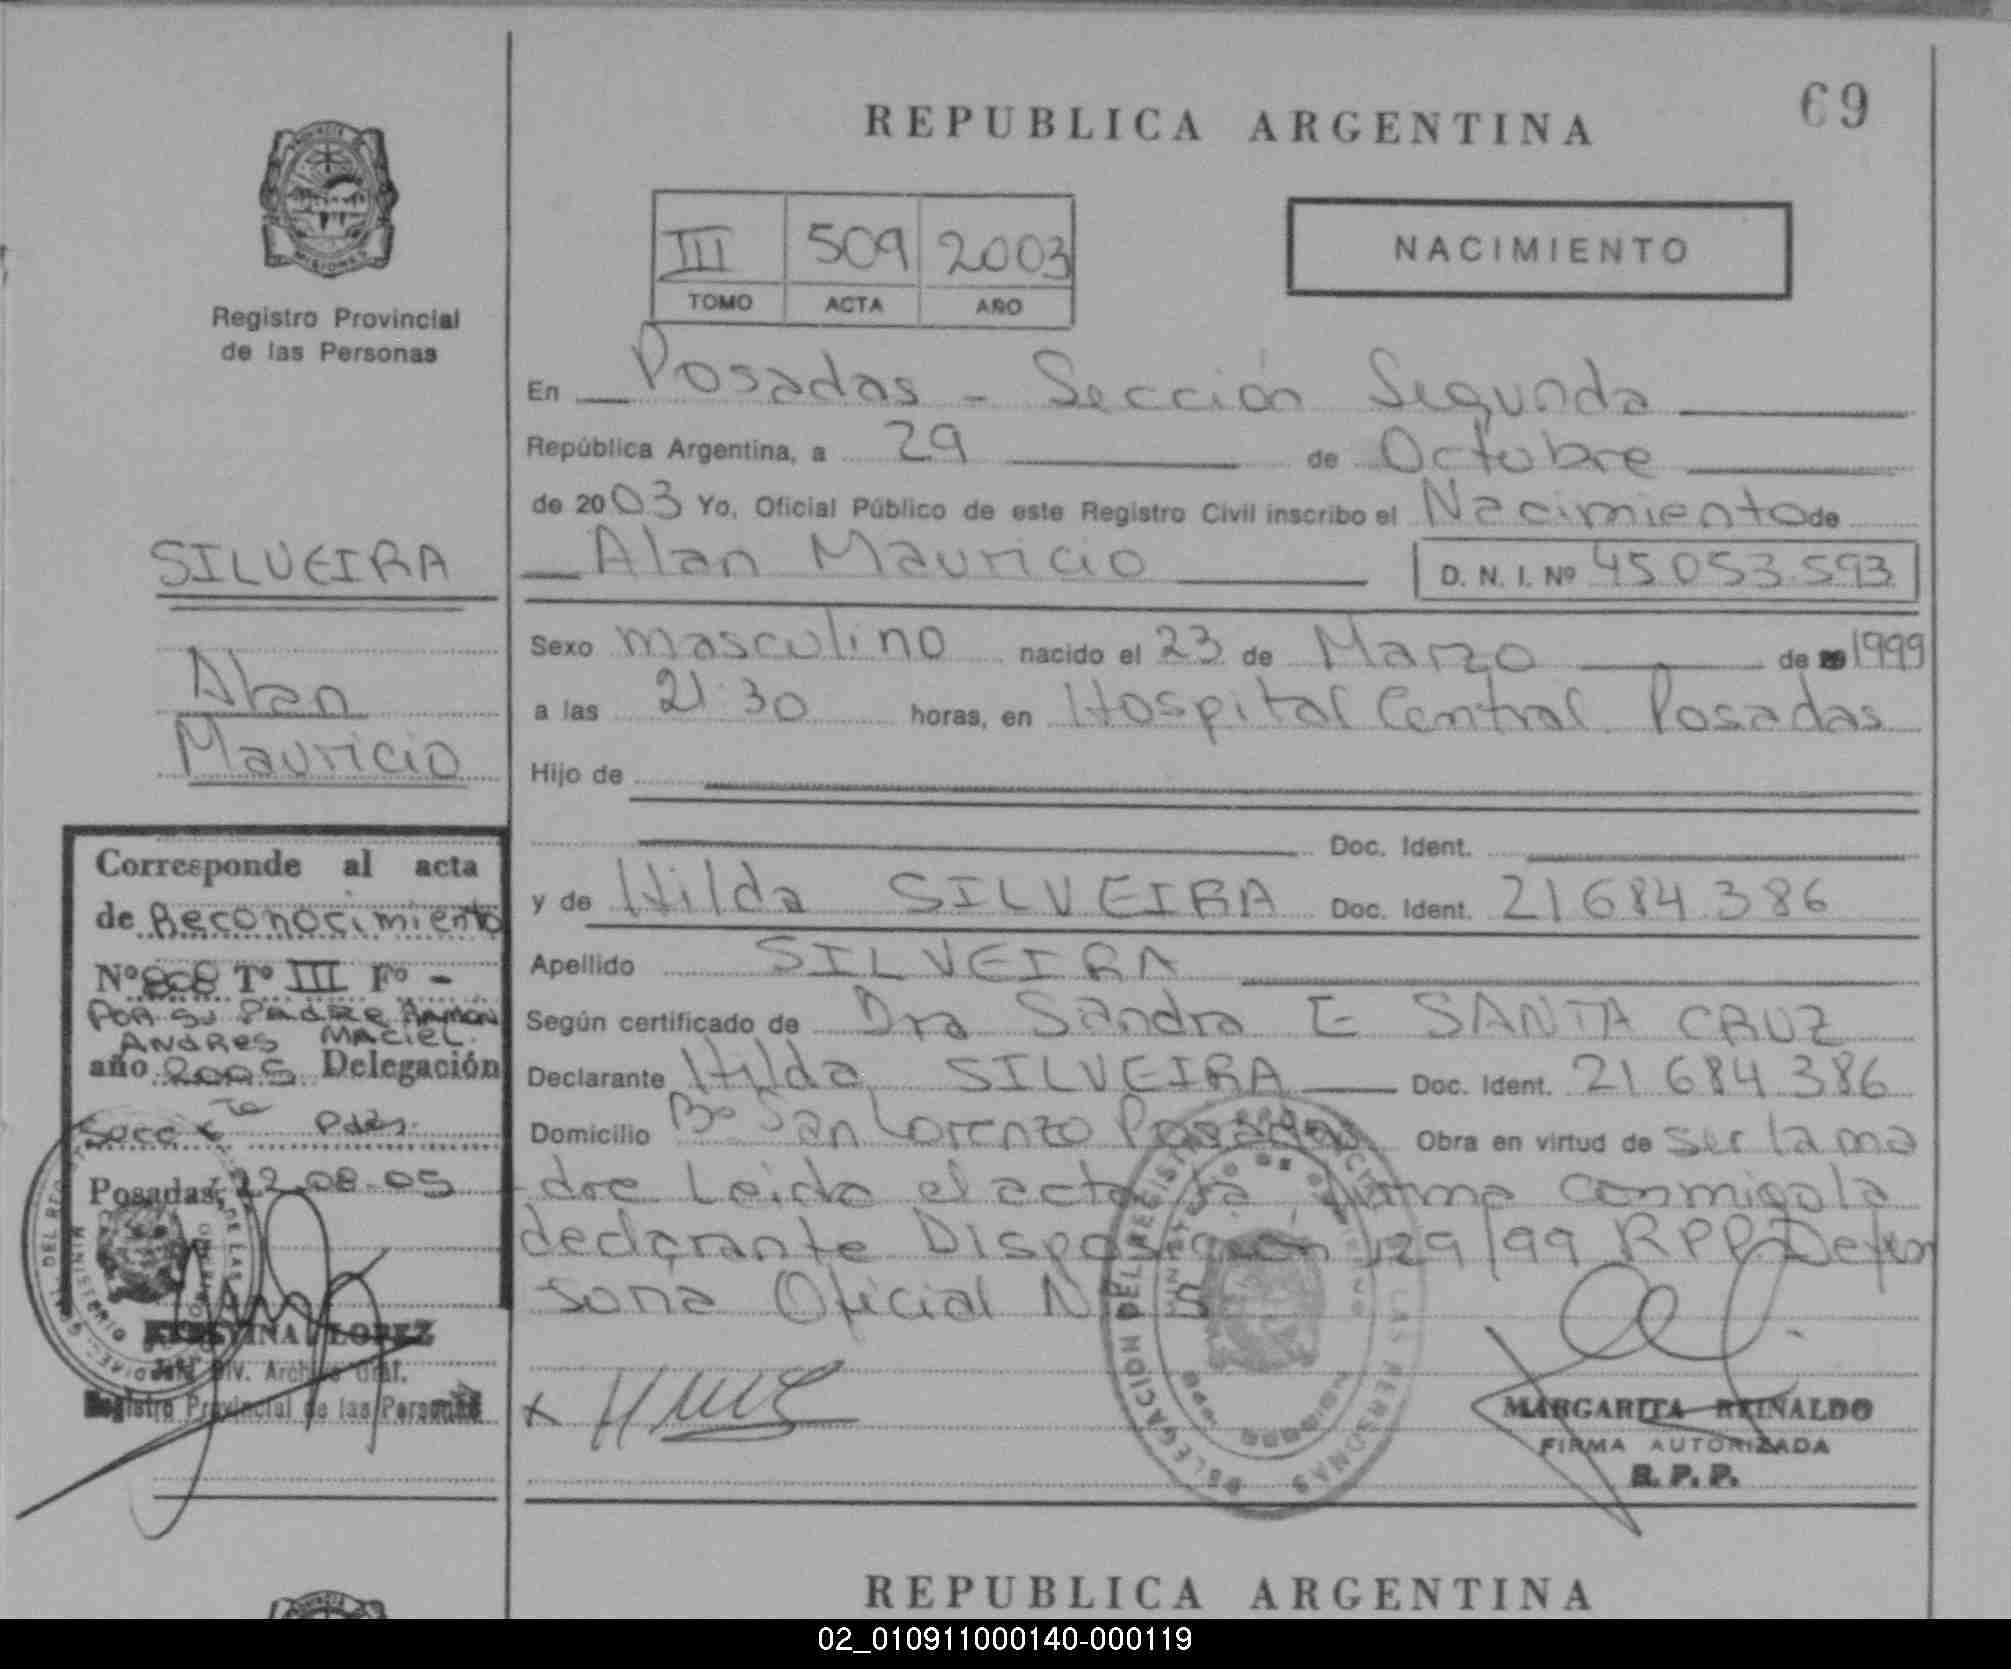 REPUBLICA ARGENTINA
69
PROVINCIA
MISIONES
Registro Provincial
de las Personas
III 509 2003
TOMO ACTA AÑO
NACIMIENTO
En Posadas - Sección Segunda
República Argentina, a 29 de Octubre
de 2003 Yo, Oficial Público de este Registro Civil inscribo el Nacimiento de
Alan Mauricio D. N. I. Nº 45.053.593
Sexo masculino nacido el 23 de Marzo de 1999
a las 21:30 horas, en Hospital Central Posadas
Hijo de
Doc. Ident.
y de Hilda SILVEIRA Doc. Ident. 21 684.386
Apellido SILVEIRA
Según certificado de Dra Sandra E SANTA CRUZ
Declarante Hilda SILVEIRA Doc. Ident. 21 684 386
Domicilio Bº San Lorenzo Posadas Obra en virtud de ser la ma
dre Leida el acta la firma conmigo la
declarante Disposición 129/99 RPP. Defen
soria Oficial Nº 5
MARGARITA REINALDO
FIRMA AUTORIZADA
R. P. P.
SILVEIRA
Alan
Mauricio
Corresponde al acta
de Reconocimiento
Nº 808 Tº III Fº -
POR su PADRE RAMON
ANDRES MACIEL.
año 2005 Delegación
Secc
Posadas, 22-08-05
LOPEZ
Div. Archivo Gral.
Registro Provincial de las Personas
DELEGACION DEL REGISTRO LAS PERSONAS
REPUBLICA ARGENTINA
02_010911000140-000119